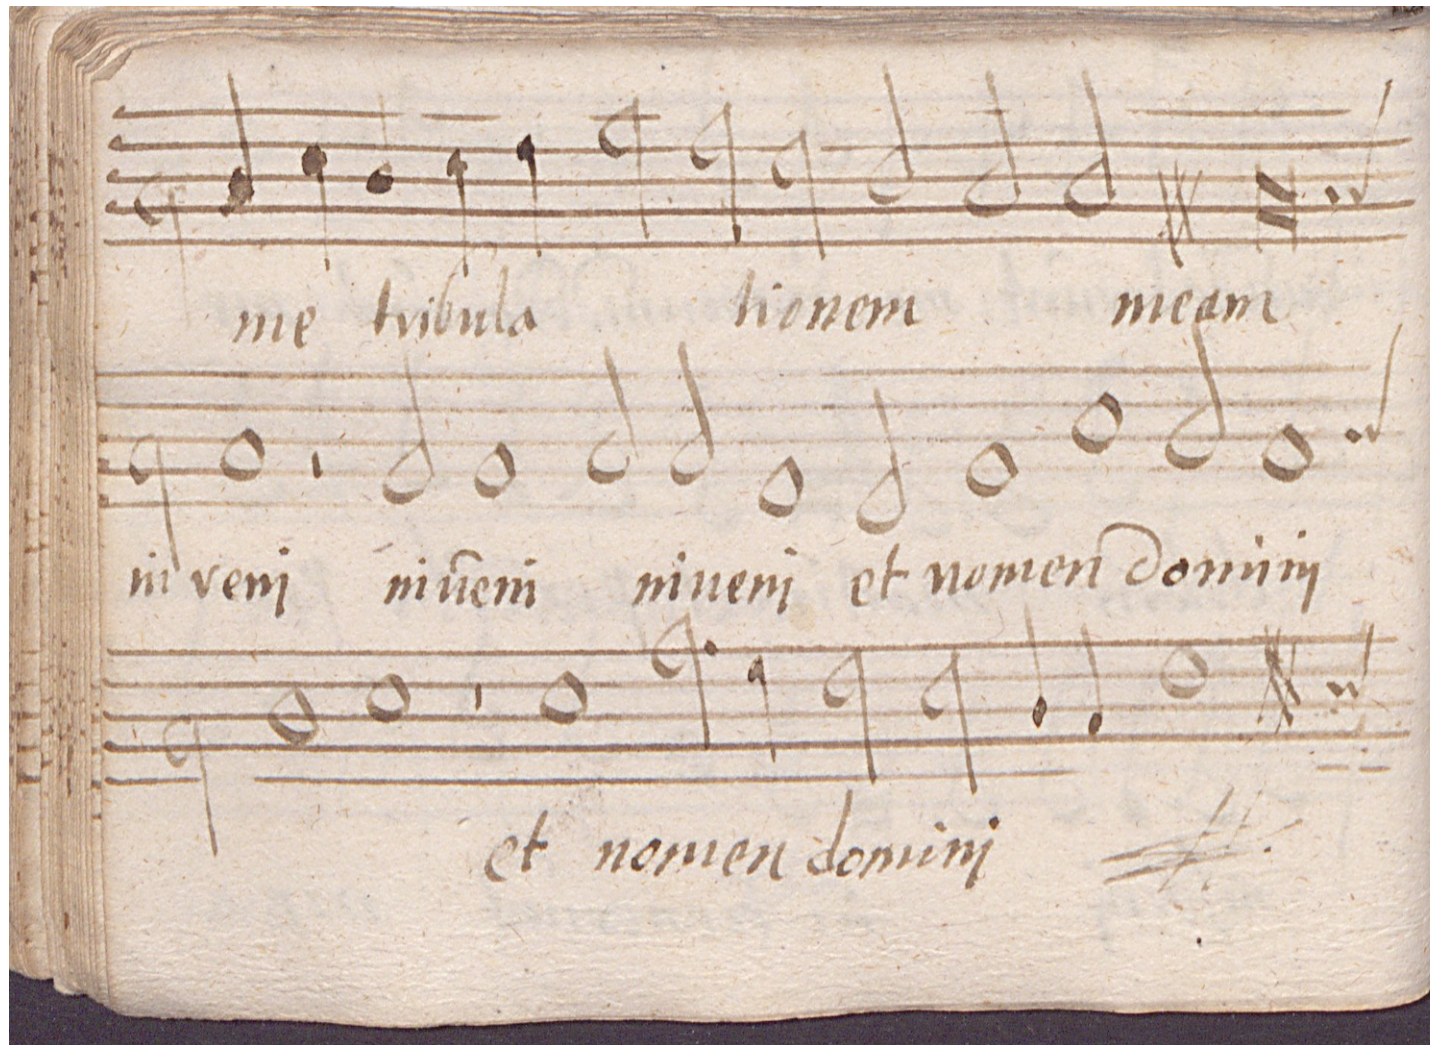 me tribula tionem meam
in veni inūeni inueni et nomen domini
et nomen domini